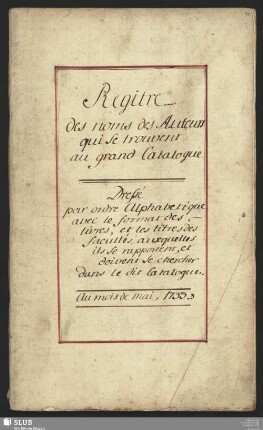 Regitre
des noms des Auteurs
qui se trouvent
au grand Catalogue
Dressé
par ordre Alphabetique
avec le format des
livres, et les titres des
facultés auxquelles
ils se rapportent, et
doivent se chercher
dans le dit Catalogue.
Au mois de Mai, 1733.
SLUB